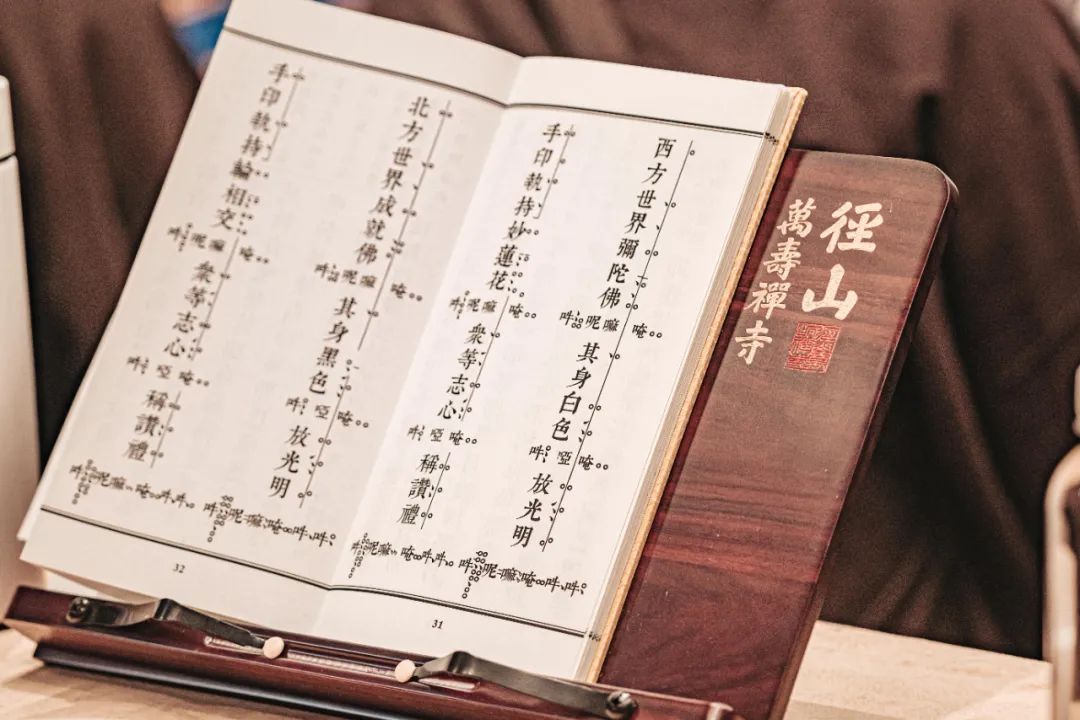 西方世界彌陀佛唵嘛呢吽其身白色唵啞吽放光明吽吽唵嘛呢吽
手印執持妙蓮花唵嘛呢吽衆等志心唵啞吽稱讚禮吽吽唵嘛呢吽
31
北方世界成就佛唵嘛呢吽其身黑色唵啞吽放光明吽吽唵嘛呢吽
手印執持輪相交唵嘛呢吽衆等志心唵啞吽稱讚禮吽吽唵嘛呢吽
32
徑山
萬壽禪寺